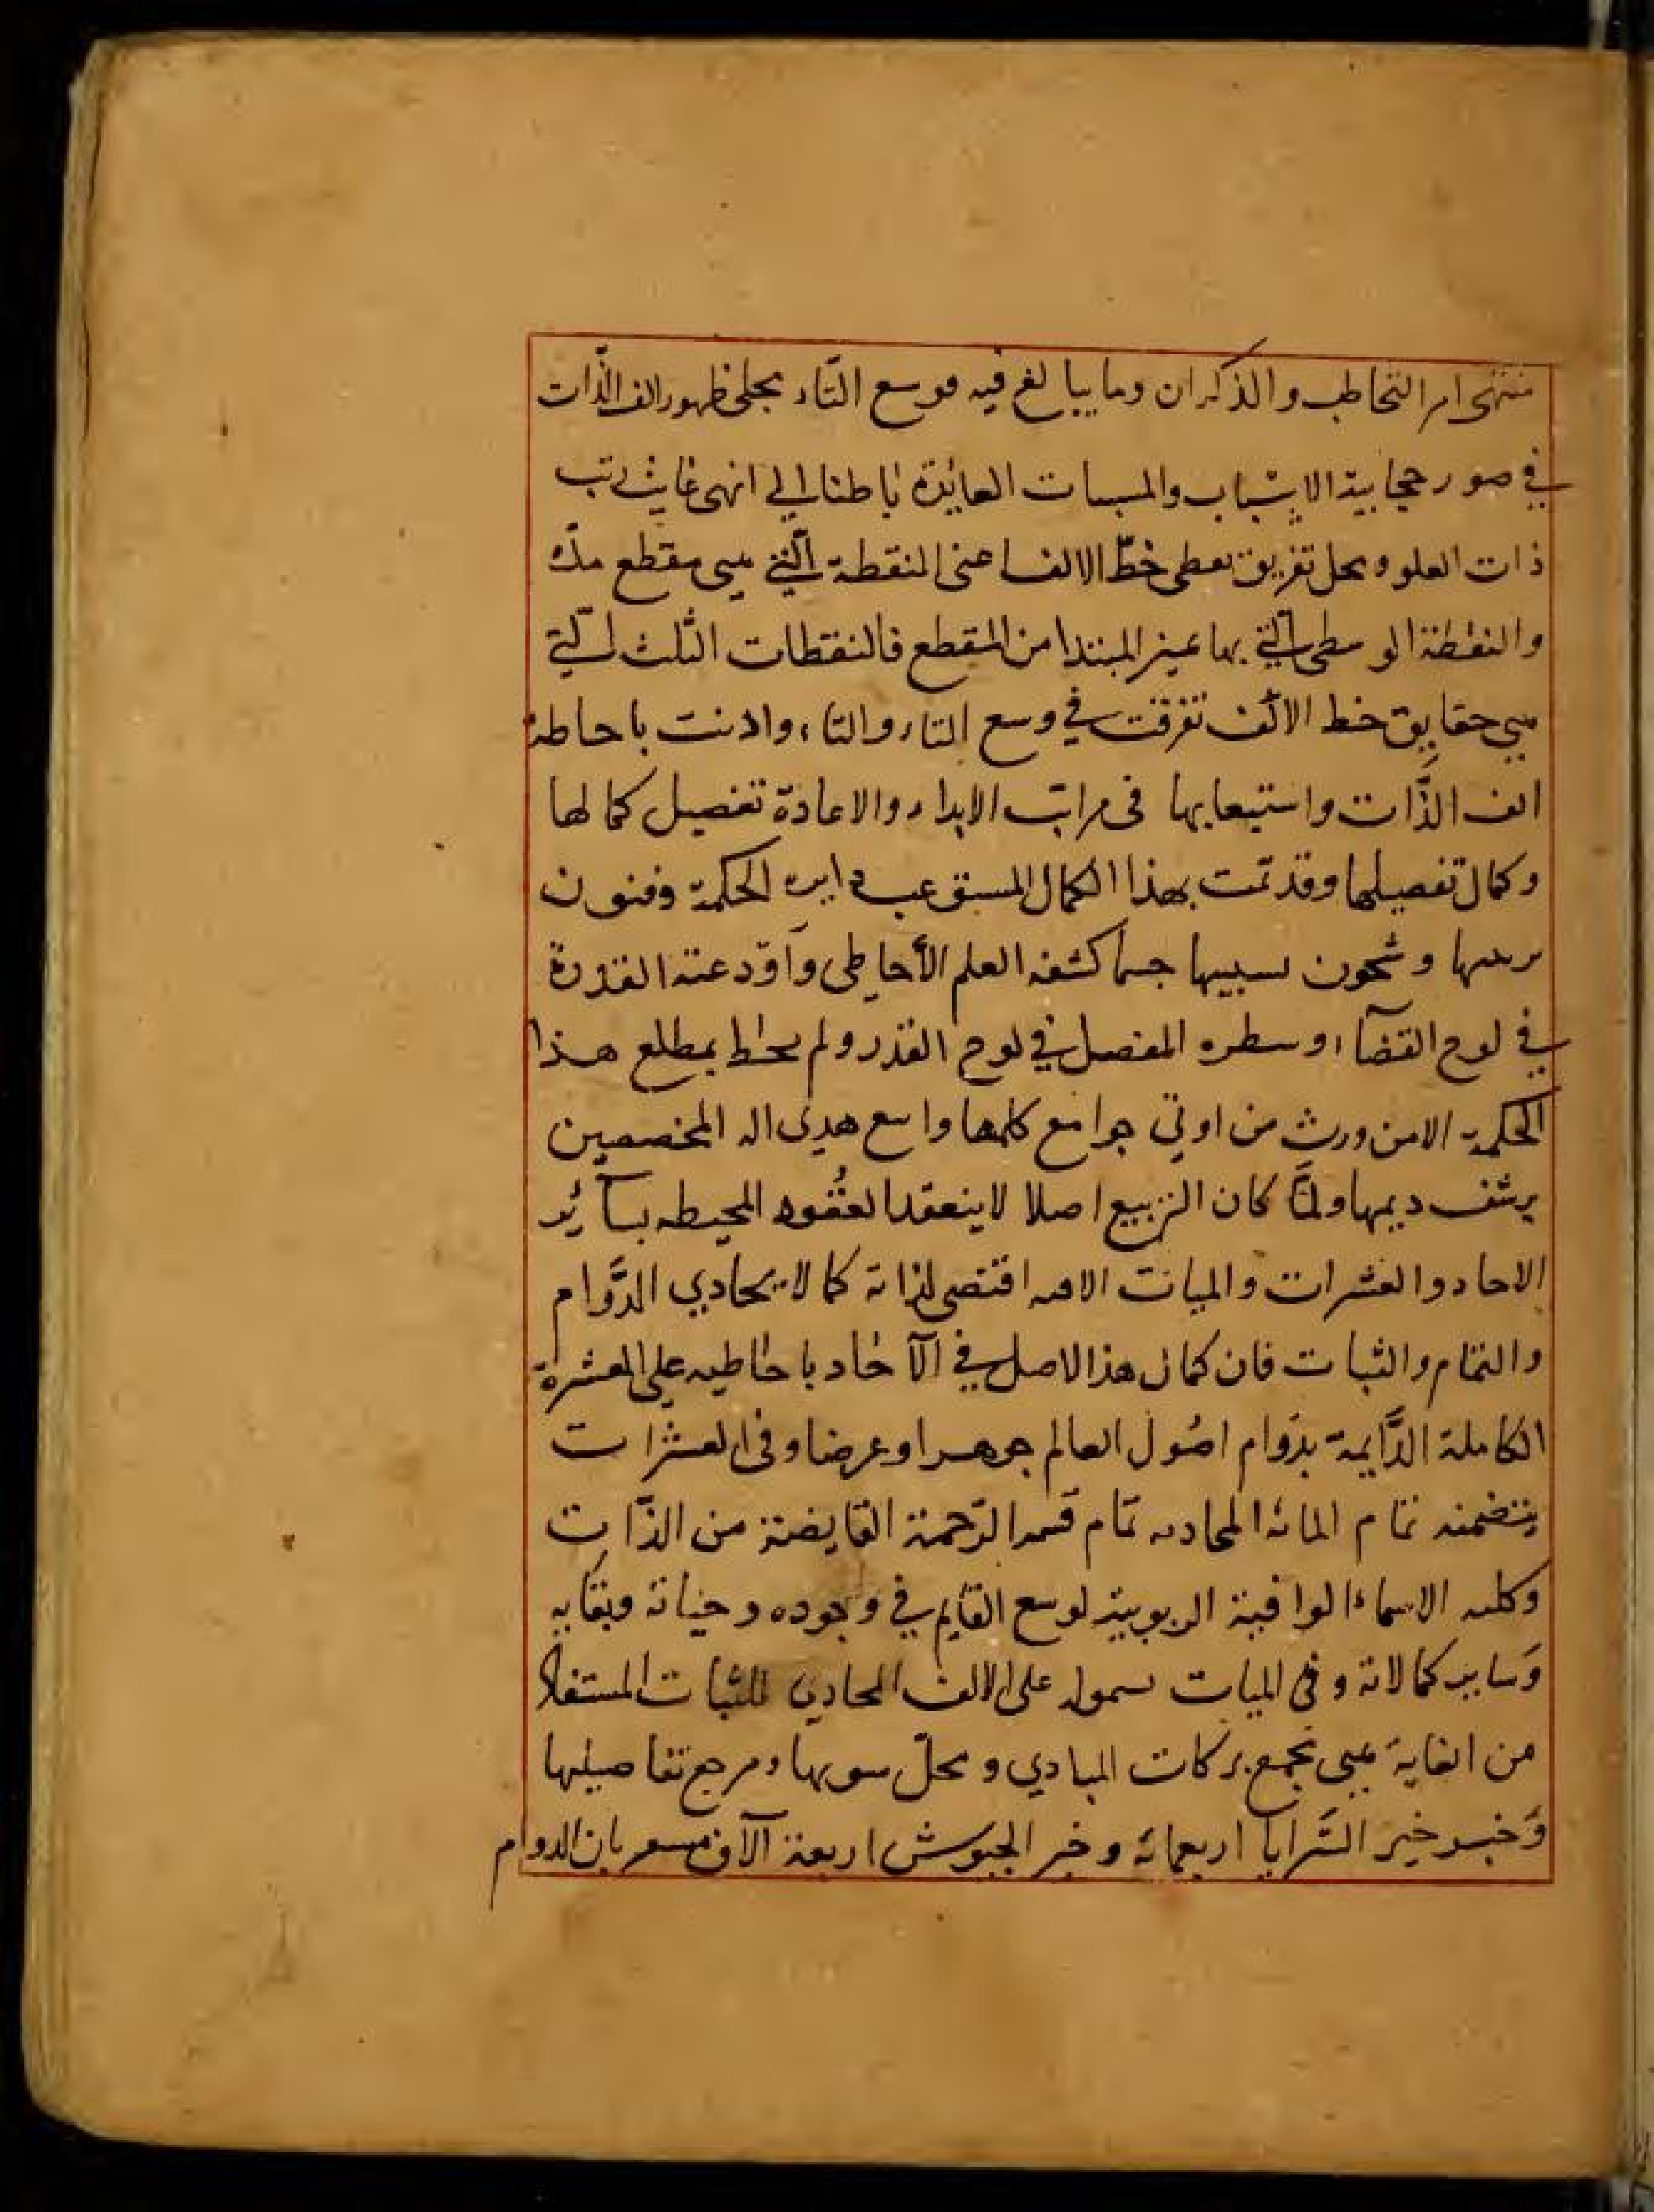 منتهى امر التخاطب والذكران وما يبالغ فيه فوسع التاء مجلى ظهور الف الذّات
في صور حجابية الاسباب والمسببات العائدة باطنا الى انهى غايات رتب
ذات العلو ومحل تفريق نعطى خطّ الالف اعنى النقطة الّتي هي مقطع مدّه
والنقطة الوسطى الّتي بها تميز المبتدا من المقطع فالنقطات الثلث الّتي
هي حقايق خط الالف تفرقت في وسع التاء والثاء واذنت باحاطة
الف الذَّات واستيعابها في مراتب الابداء والاعادة تفصيل كمالها
وكمال تفصيلها وقد تمت بهذا الكمال المستوعب دايره الحكمة وفنون
وشحون حسبما كشفه العلم الأحاطى وأودعته القدرة
في لوح القضاء وسطره المفصل في لوح القدر ولم يحط بمطلع هذا
الحكمة الا من ورث من اوتي جوامع كلمها واسع هدى اله المخصصين
برشف ديمها ولمّا كان التربيع اصلا لا ينعقد العقود المحيطه بسائر
الاحاد والعشرات والميات الا به اقتضى لذاته كمالا يحادي الدَّوام
والتمام والثبات فان كمال هذا الاصل في الآحاد باحاطيه على العشرة
الكاملة الدَّايمة بدوام اصُول العالم جوهرا وعرضا وفي العشرات
يتضمنه تمام المائه المحاديه تمام قسم الرّحمة الفايضة من الذّات
وكليه الاسماء الوافية الربوبية لوسع القايم في وجوده وحياته وبقايه
وساير كمالاته وفي الميات بشموله على الالف المحادى للثبات المستفاد
من الغاية هي مجمع بركات المبادي ومحلّ ومرجع تفاصيلها
وخبر خير السَّرايا اربعمائه وخير الجيوش اربعة آلاف مشعر بان الدوام